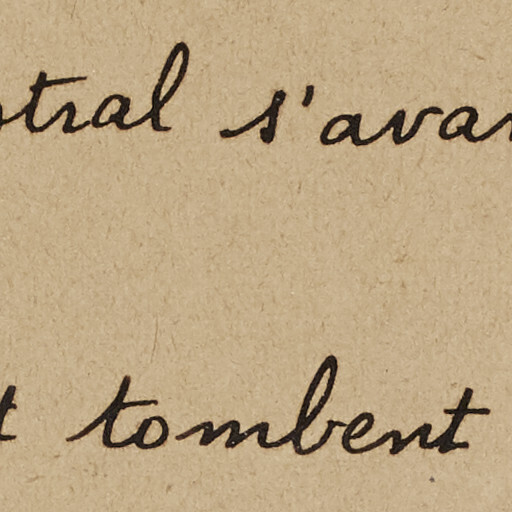 stral s'avan
t tombent